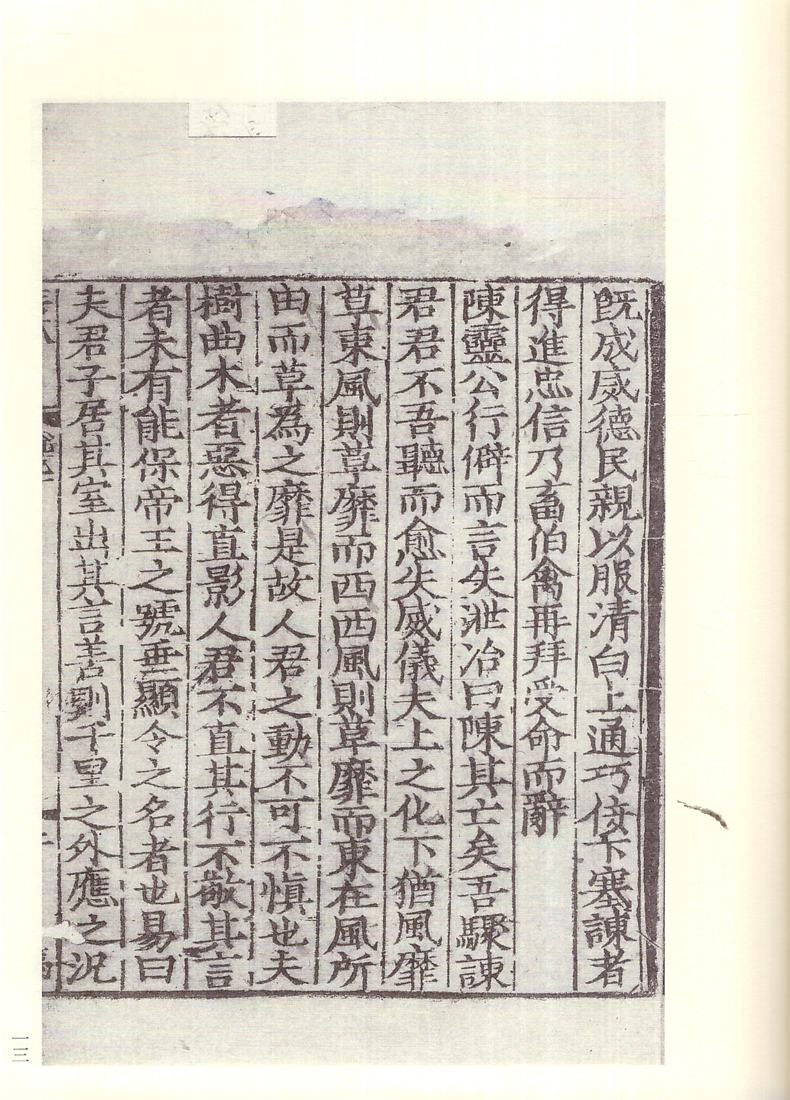 旣成威德民親以服清白上通巧佞下塞諫者
得進忠信乃畜伯禽再拜受命而辭
陳靈公行僻而言失泄冶曰陳其亡矣吾驟諫
君君不吾聽而愈失威儀夫上之化下猶風靡
草東風則草靡而西西風則草靡而東在風所
由而草爲之靡是故人君之動不可不愼也夫
樹曲木者惡得直影人君不直其行不敬其言
者未有能保帝王之號垂顯令之名者也易曰
夫君子居其室出其言善則千里之外應之況
一三